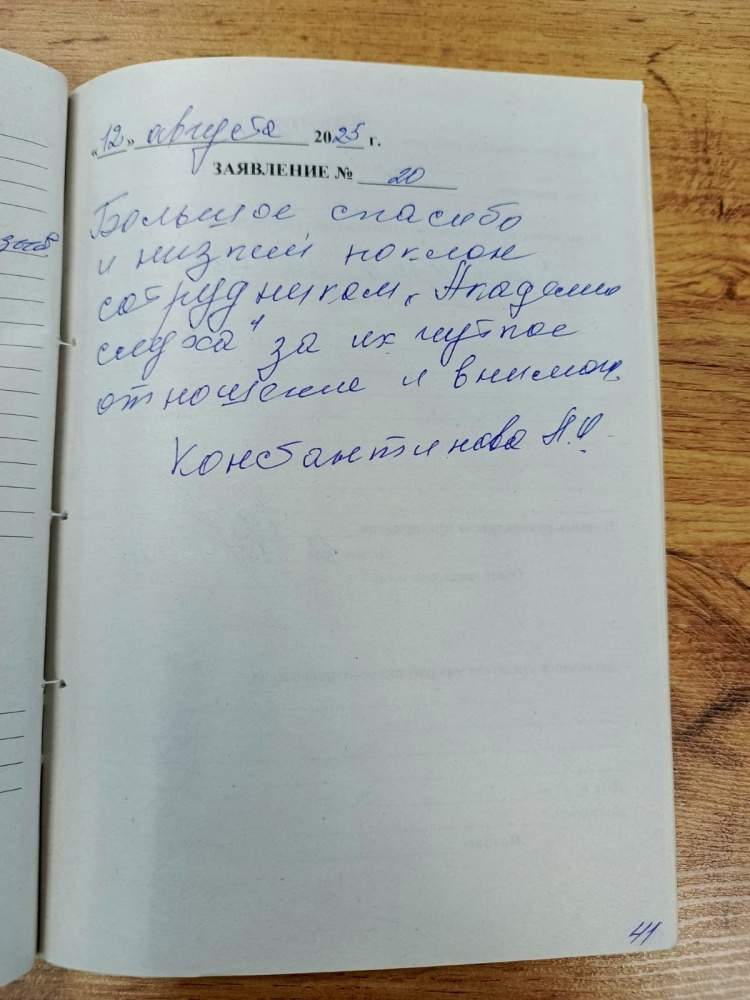 «12» августа 2025 г.
ЗАЯВЛЕНИЕ № 20
Большое спасибо
и низкий поклон
сотрудникам „Академии
слуха" за их чуткое
отношение и внимание
Константинова А.Ф.
41